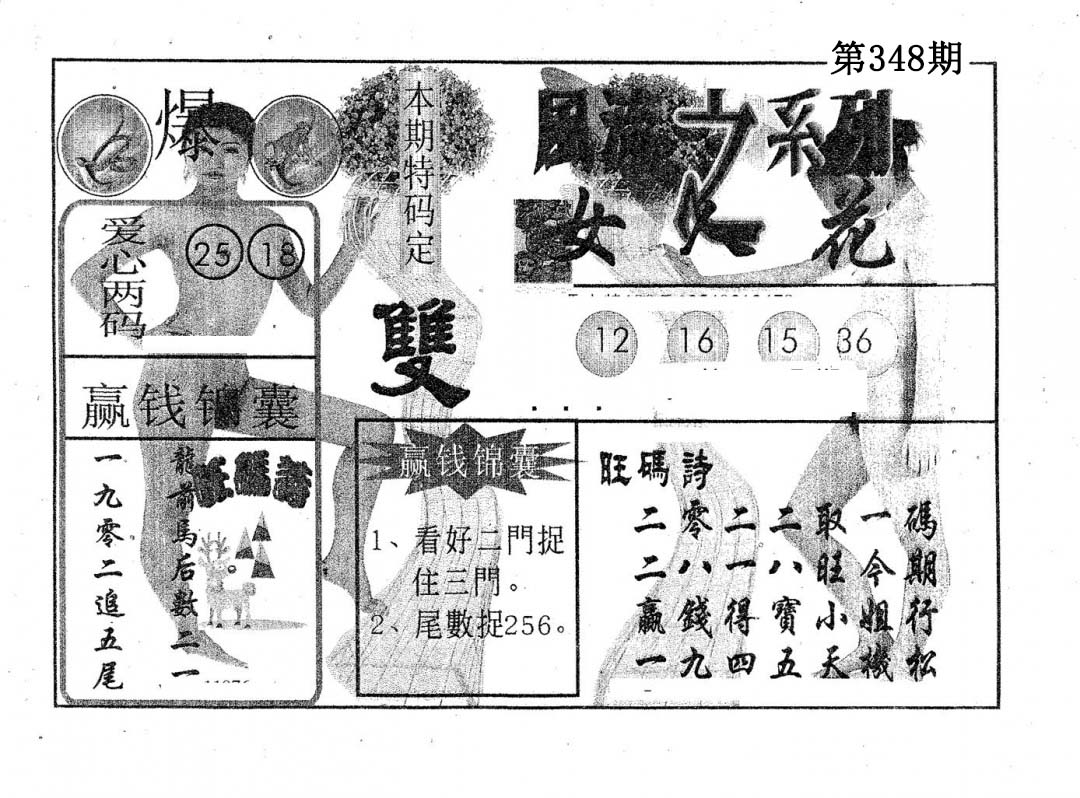 第348期
爆
本期特码定
雙
系列
女人花
爱心两码
25 18
12 16 15 36
赢钱锦囊
一九零二追五尾
龍前馬后數二一
赢钱锦囊
1、看好二門捉
住三門。
2、尾數捉256。
旺碼詩
二零二二取一碼
二八一八旺今期
贏錢得寶小姐行
一九四五天機松